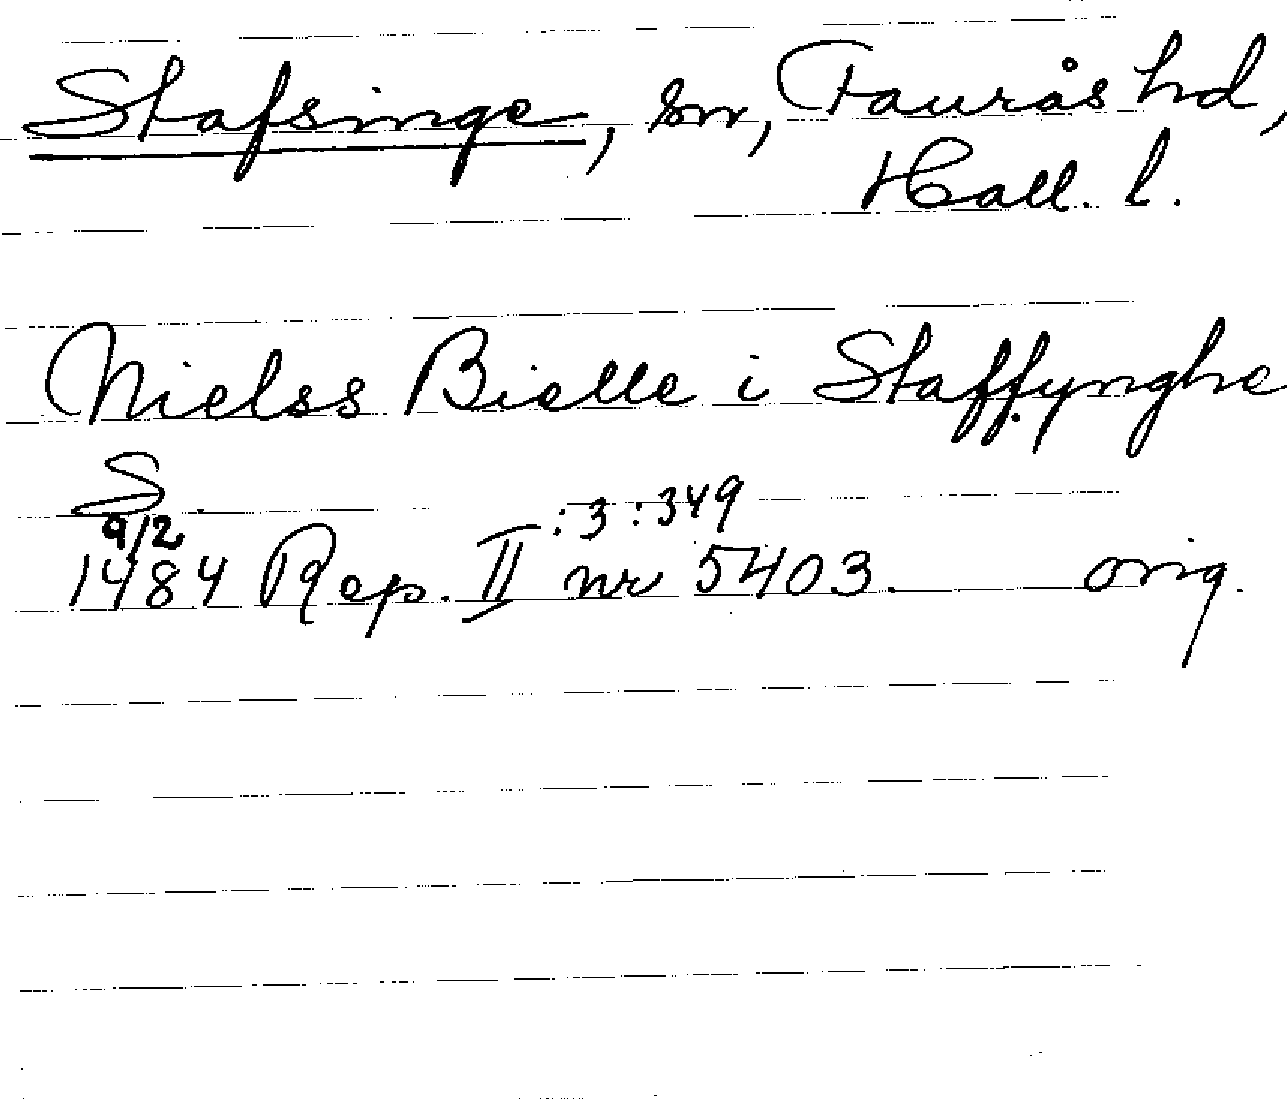 Stafsinge, sn, Faurås hd,
Hall. l.
Nielss Bielle i Staffynghe
S
9/2
1484 Rep. II :3 :349 nr 5403. orig.